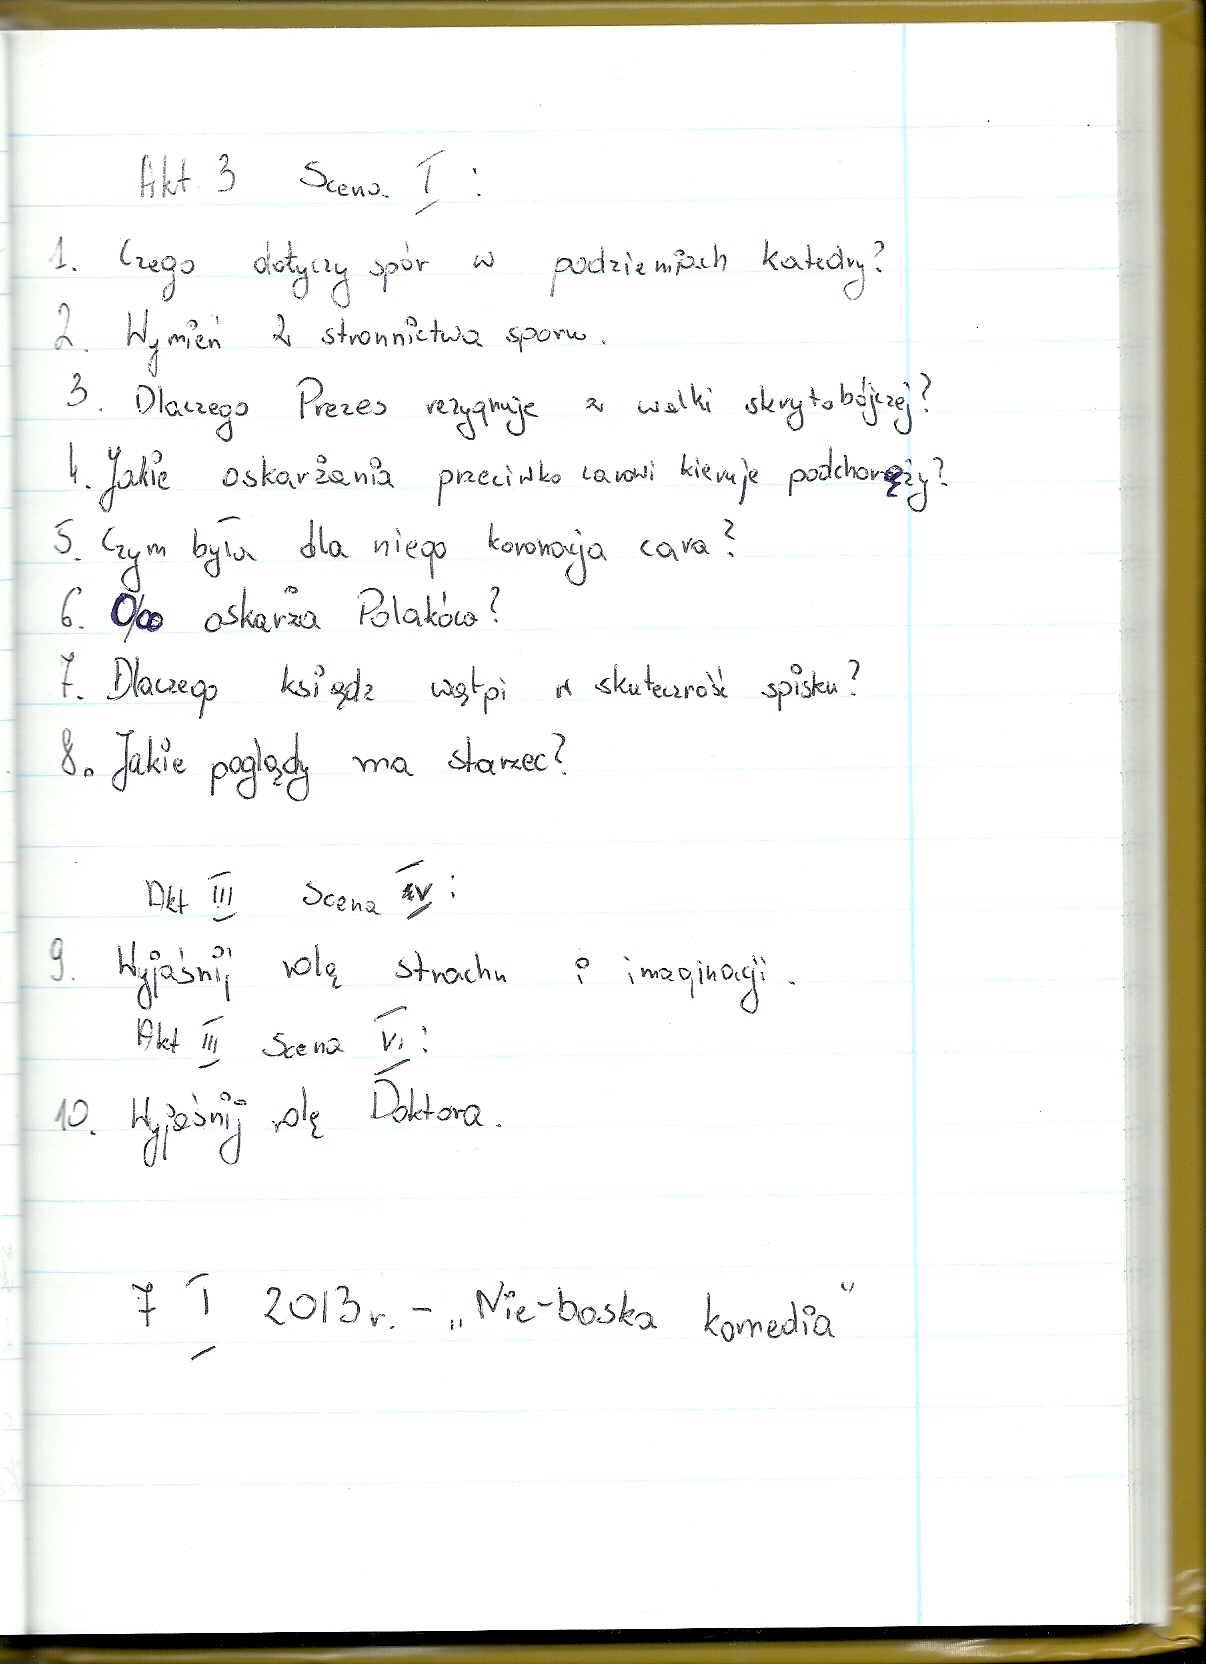 Akt 3 Scena I :
1. Czego dotyczy spór w podziemiach katedry?
2. Wymień 2 stronnictwa sporu.
3. Dlaczego Prezes rezygnuje z walki skrytobójczej?
4. Jakie oskarżania przeciwko carowi kieruje podchorąży?
5. Czym była dla niego koronacja cara?
6. O co oskarża Polaków?
7. Dlaczego ksiądz wątpi w skuteczność spisku?
8. Jakie poglądy ma starzec?
Akt III Scena IV :
9. Wyjaśnij rolę strachu i imaginacji.
Akt III Scena VI :
10. Wyjaśnij rolę Doktora.
7 I 2013 r. - „Nie-boska komedia"